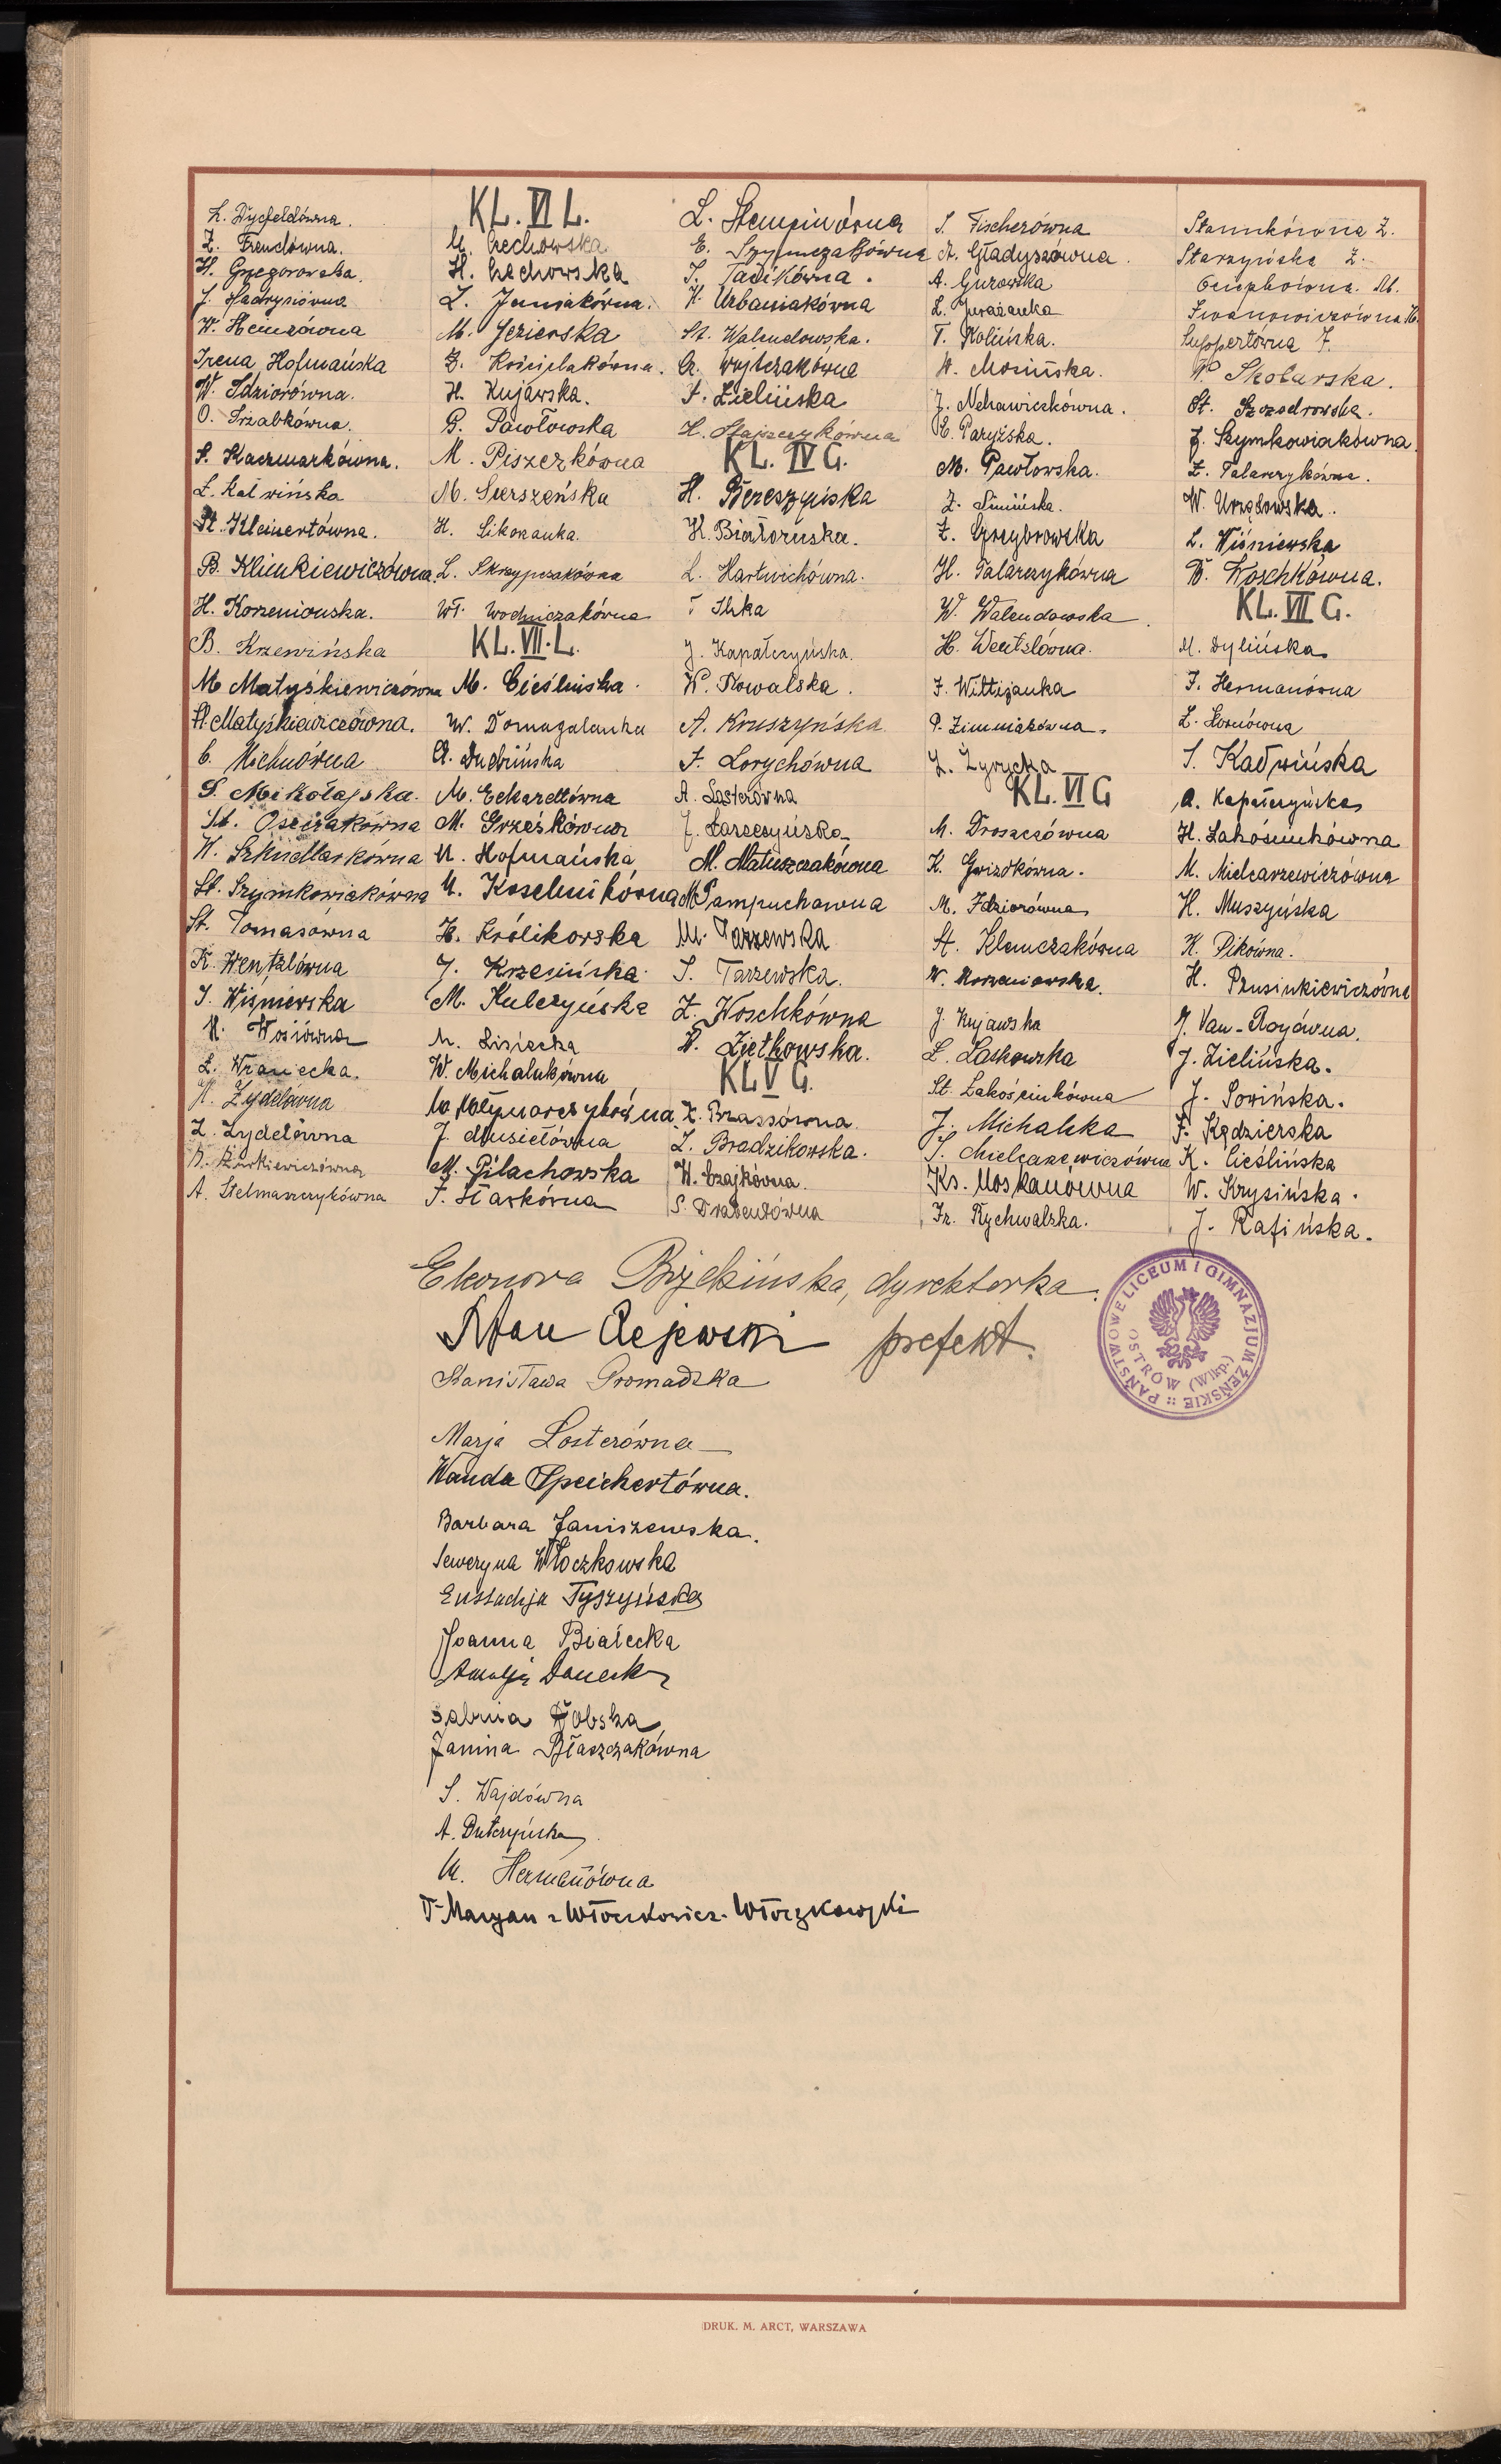 Z. Dycfeldówna.
Z. Frenclówna.
H. Grzegorowska.
J. Hadrysiówna
W. Heinzówna
Irena Hofmańska
W. Idziorówna.
O. Izabkówna.
S. Kaczmarkówna.
Z. Kalwińska
St. Kleinertówna.
B. Klimkiewiczówna
H. Korzeniowska.
B. Krzewińska
M. Matyśkiewiczówna
H. Matyśkiewiczówna.
C. Michnówna
S. Mikołajska.
St. Osieczakówna
H. Szkudlarkówna
St. Szymkowiakówna
St. Tomasówna
K. Wentzlówna
I. Wiśniewska
H. Wosiówna
Z. Wraniecka.
H. Zydelówna
Z. Zydelówna
Żurkiewiczówna
A. Stelmaszczykówna
KL. VI L.
M. Czechowska
H. Czechowska
Z. Janiakówna.
M. Jezierska
Z. Kościelakówna.
H. Kujawska.
G. Pawłowska
M. Piszerkówna
M. Sierszeńska
H. Sikorzanka.
L. Skrzypczakówna
Wł. Wodniczakówna
KL. VII. L.
M. Cieślińska.
W. Domagalanka
A. Dubińska
M. Eckarettówna
M. Grześkówna
M. Hofmańska
M. Koselnikówna
H. Królikowska
J. Krzesińska.
M. Kulczyńska
M. Lisiecka
W. Michalukówna
M. Młynarczykówna
J. Musiełówna
M. Piłachowska
F. Starkówna
L. Stempinówna
E. Szymczakówna
S. Tacikówna.
H. Urbaniakówna
St. Walendowska.
Cz. Wojtczakówna
F. Zielińska
H. Stajszczykówna
KL. IV G.
H. Bereszyńska
H. Białoruska.
L. Hartwichówna.
Ilska
J. Kapałczyńska.
W. Kowalska.
A. Kruszyńska
F. Lorychówna
A. Losterówna
J. Łorzeszyńska
M. Matuszczakówna
M. Pampuchawna
M. Tarzewska
S. Tarzewska.
Z. Woschkówna
W. Ziętkowska.
KL V G.
K. Brassówna
Z. Bradzikowska.
W. Czajkówna.
S. Drabentówna
S. Fischerówna
A. Gładyszówna.
A. Gurowska
L. Jurażanka
T. Kolińska.
W. Mosińska.
J. Nehawiczkówna.
E. Paryżska.
M. Pawłowska.
Z. Simińska.
Z. Grzybrowska
H. Talarczykówna
W. Walendowska.
H. Wentzlówna.
F. Wittijanka
P. Zimniakówna.
Z. Żyrycka
KL. VI G
M. Droszczówna
K. Gwizdkówna.
M. Idziorówna
St. Klimczakówna
W. Korzeniowska.
J. Kujawska
L. Laskowska
St. Łakościukówna
J. Michalska
S. Mielcarzewiczówna
Ks. Moskanówna
Fr. Rychwalska.
Stannikówna Z.
Starzyńska Z.
M.
Iwanowiczówna H.
Suppertówna J.
W. Skobarska.
St. Szczodrowska.
J. Szymkowiakówna
Z. Talarczykówna.
W. Urzędowska.
L. Wiśniewska
W. Woschkówna.
KL. VII G.
M. Dylińska
I. Hermanówna
Z. Hornówna
S. Kadwińska
A. Kapałczyńska
H. Łakościukówna
M. Mielcarzewiczówna
H. Muszyńska
K. Pikówna.
H. Prusinkiewiczówna
J. Van-Royówna.
J. Zielińska.
J. Sowińska.
F. Kędzierska
K. Cieślińska
W. Krysińska.
J. Rafińska.
Eleonora Brydzińska, dyrektorka.
Stan Rejewski prefekt.
PAŃSTWOWE LICEUM I GIMNAZJUM ŻEŃSKIE
OSTRÓW (Wlkp.)
Stanisława Gromadzka
Marja Losterówna
Wanda Speichertówna.
Barbara Janiszewska.
Seweryna Włoczkowska
Eustachja Tyszyńska
Joanna Białecka
Amalja Daneck
Sabina Dobska
Janina Błaszczakówna
S. Wajdówna
A. Dutczyńska
M. Hermanówna
Dr Maryan z Włoczkowicz-Włoczkowski
DRUK. M. ARCT, WARSZAWA